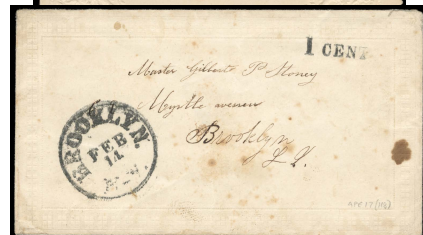 1 CENT
Master Gilbert P Stoney
Myrtle avenue
Brooklyn
L. I.
BROOKLYN.
FEB
14
N.Y.